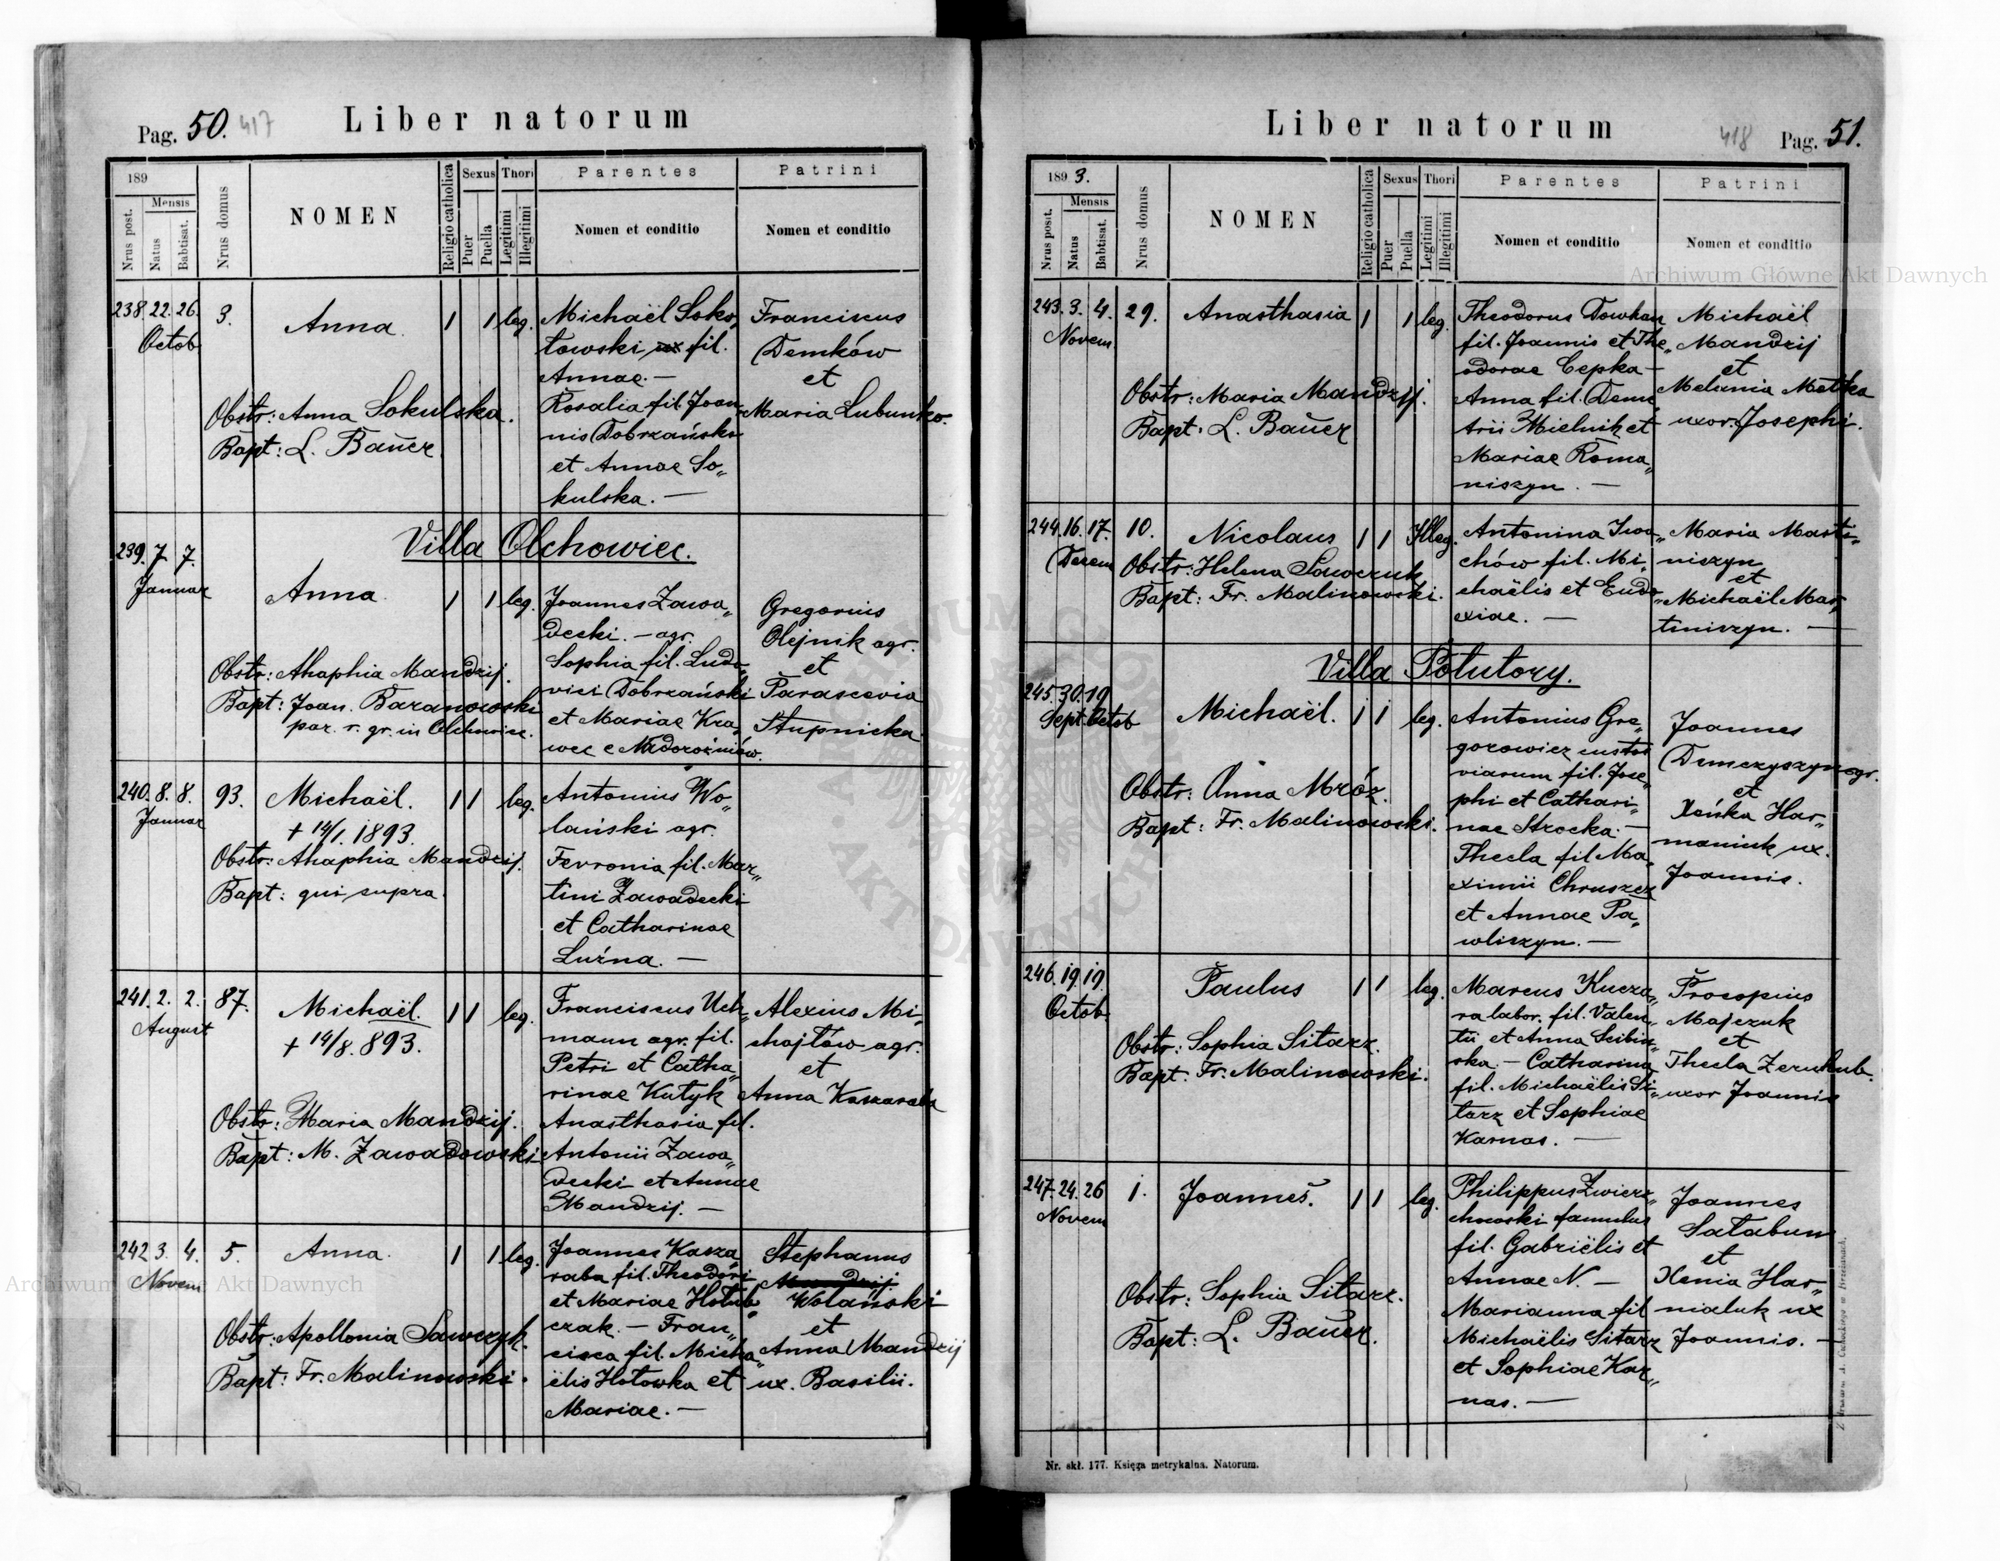 Pag. 50. 417
Liber natorum
189
Nrus post.
Mensis
Natus
Babtisat.
Nrus domus
NOMEN
Religio catholica
Sexus
Puer
Puella
Thori
Legitimi
Illegitimi
Parentes
Nomen et conditio
Patrini
Nomen et conditio
238. 22. 26. 3. Anna. 1 1 leg.
Octob.
Obstr: Anna Sokulska.
Bapt: L. Bauer
Michaël Soko„
łowski fil.
Annae. —
Rosalia fil. Joan„
nis Dobrzański
et Annae So„
kulska. —
Franciscus
Demków
et
Maria Lubunko.
Villa Olchowiec.
239. 7. 7. Anna. 1 1 leg.
Januar
Obstr: Ahaphia Mandzij.
Bapt: Joan. Baranowski
par. r. gr. in Olchowiec.
Joannes Zawa„
decki. — agr.
Sophia fil. Ludo„
vici Dobrzański
et Mariae Kra„
wec e Nadorożniów.
Gregorius
Olejnik agr.
et
Parascevia
Stupnicka.
240. 8. 8. 93. Michaël. 1 1 leg.
Januar
+ 14/1. 1893.
Obstr: Ahaphia Mandzij.
Bapt: qui supra.
Antonius Wo„
lański agr.
Fevronia fil. Mar„
tini Zawadecki
et Catharinae
Luźna. —
241. 2. 2. 87. Michaël. 1 1 leg.
August
+ 14/8. 893.
Obstr: Maria Mandzij.
Bapt: M. Zawadowski
Franciscus Uch„
mann agr. fil.
Petri et Catha„
rinae Kutyk
Anasthasia fil.
Antonii Zawa„
decki et Annae
Mandzij. —
Alexius Mi„
chajłow agr.
et
Anna Kaszaraba
242 3. 4. 5. Anna. 1 1 leg.
Novem
Obstr: Apollonia Sawczyk.
Bapt: Fr. Malinowski.
Joannes Kasza„
raba fil. Theodori
et Mariae Hołub„
czak. — Fran„
cisca fil. Micha„
ëlis Hotowka et
Mariae. —
Stephanus
Mandzij
Wolański
et
Anna Mandzij
ux. Basilii.
Liber natorum
418 Pag. 51.
1893.
Nrus posit.
Mensis
Natus
Babtisat.
Nrus domus
NOMEN
Religio catholica
Sexus
Puer
Puella
Thori
Legitimi
Illegitimi
Parentes
Nomen et conditio
Patrini
Nomen et conditio
243. 3. 4. 29. Anasthasia 1 1 leg.
Novem
Obstr: Maria Mandzij.
Bapt: L. Bauer
Theodorus Dowhan
fil. Joannis et The„
odorae Cepka —
Anna fil. Deme„
trii Mielnik et
Mariae Roma„
niszyn. —
Michaël
Mandzij
et
Melania Metka
uxor. Josephi.
244. 16. 17. 10. Nicolaus 1 1 Illeg.
Decem
Obstr: Helena Sawczuk
Bapt: Fr. Malinowski.
Antonina Iwa„
chów fil. Mi„
chaëlis et Eudo„
xiae. —
Maria Marti„
niszyn
et
Michaël Mar„
tiniszyn. —
Villa Potutory.
245. 30. 19 Michaël. 1 1 leg.
Sept. Octob
Obstr: Anna Mróz.
Bapt: Fr. Malinowski.
Antonius Gre„
gorowicz custos
viarum fil. Jose„
phi et Cathari„
nae Strocka. —
Thecla fil. Ma„
ximii Chruszcz
et Annae Pa„
wliszyn. —
Joannes
Demczyszyn agr.
et
Xeńka Har„
maniuk ux.
Joannis.
246. 19. 19. Paulus 1 1 leg.
Octob
Obstr: Sophia Sitarz.
Bapt: Fr. Malinowski.
Marcus Kucza„
ra labor. fil. Valen„
tii et Anna Scibin„
ska. — Catharina
fil. Michaëlis Si„
tarz et Sophiae
Karnas. —
Procopius
Majczuk
et
Thecla Zerukub.
uxor Joannis
247. 24. 26 1. Joannes. 1 1 leg.
Novem
Obstr: Sophia Sitarz.
Bapt: L. Bauer.
Philippus Zwierz„
chowski famulus
fil. Gabriëlis et
Annae N. —
Marianna fil
Michaëlis Sitarz
et Sophiae Kar„
nas. —
Joannes
Satabun
et
Xenia Har„
nialuk ux
Joannis. —
Nr. skł. 177. Księga metrykalna. Natorum.
Archiwum Główne Akt Dawnych
Archiwum Główne Akt Dawnych